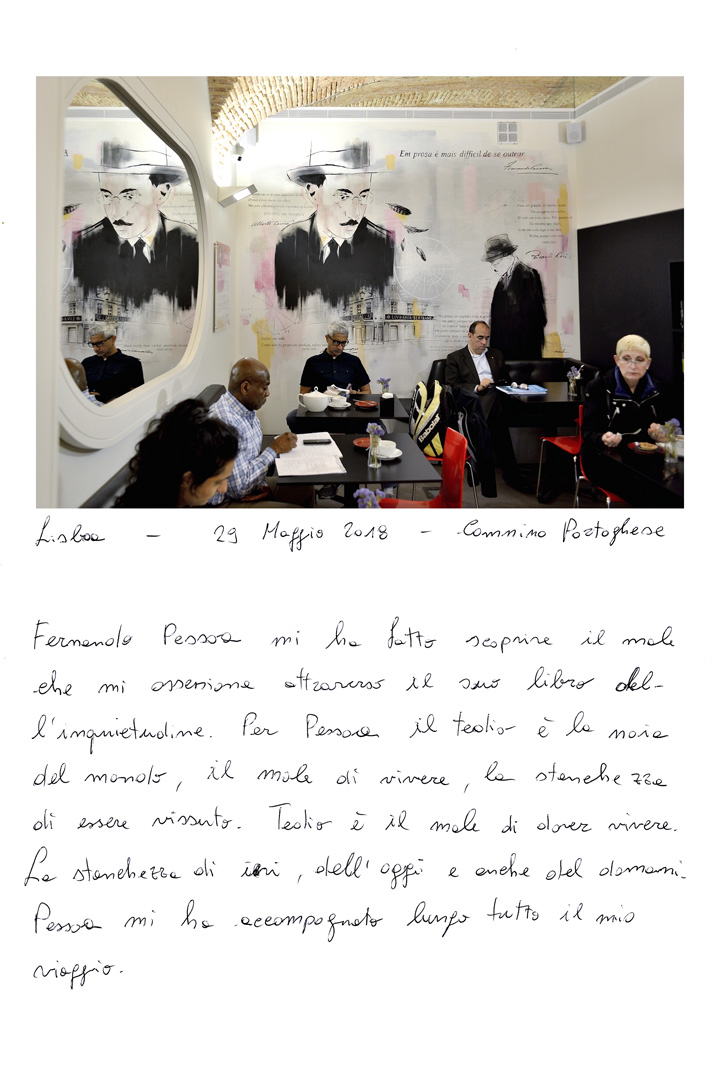 Em prosa é mais difícil de se outrar
Babolat
Lisboa - 29 Maggio 2018 - Cammino Portoghese
Fernando Pessoa mi ha fatto scoprire il male
che mi ossessiona attraverso il suo libro del-
l'inquietudine. Per Pessoa il tedio è la noia
del mondo, il male di vivere, la stanchezza
di essere vissuto. Tedio è il male di dover vivere.
La stanchezza di ieri, dell'oggi e anche del domani.
Pessoa mi ha accompagnato lungo tutto il mio
viaggio.